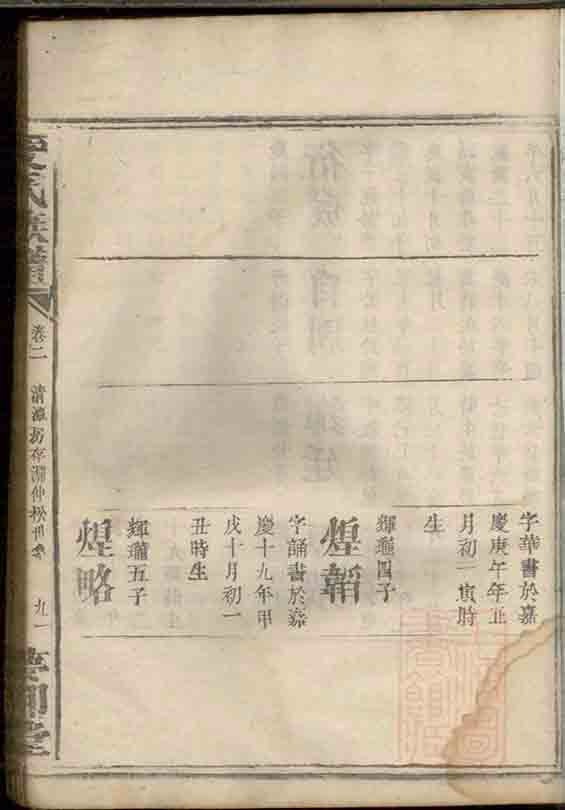 字華書於嘉
慶庚午年正
月初一寅時
生
輝瓏四子
煌韜
字誦書於嘉
慶十九年甲
戌十月初一
丑時生
輝瓏五子
煌略
氏族譜
卷二
清漳房存淵仲松世系
九一